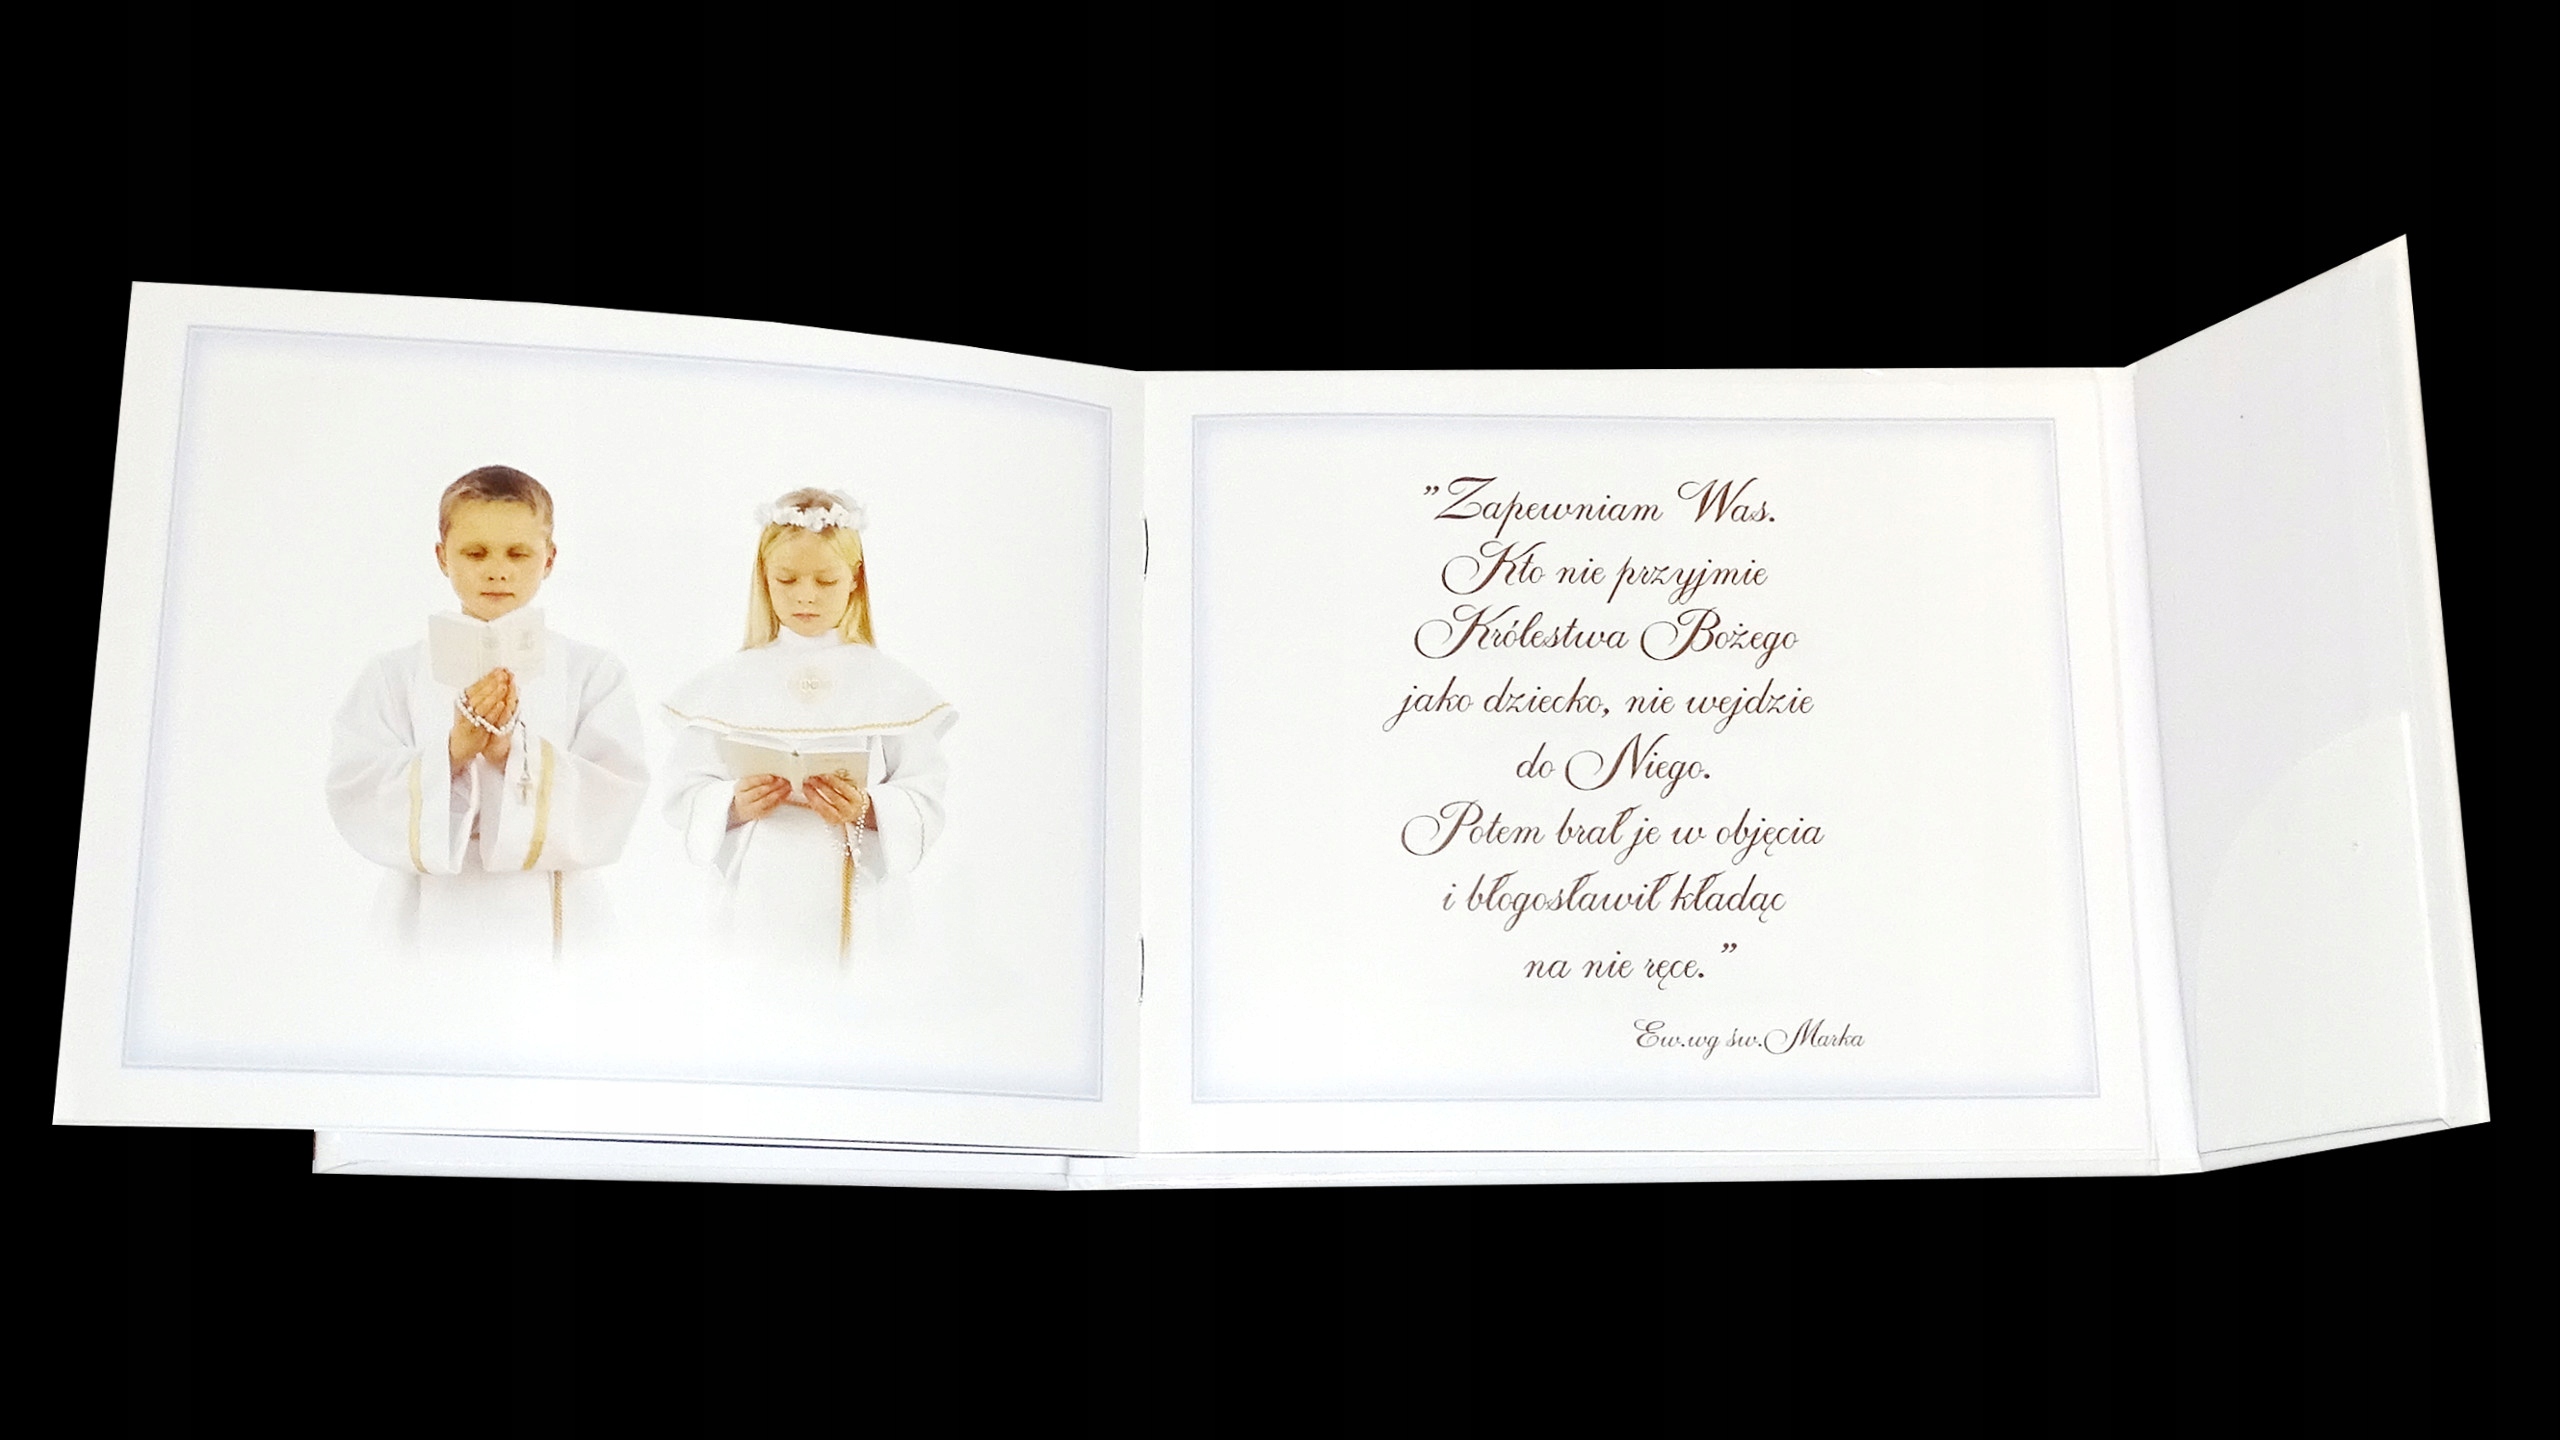 ”Zapewniam Was.
Kto nie przyjmie
Królestwa Bożego
jako dziecko, nie wejdzie
do Niego.
Potem brał je w objęcia
i błogosławił kładąc
na nie ręce.”
Ew.wg św.Marka